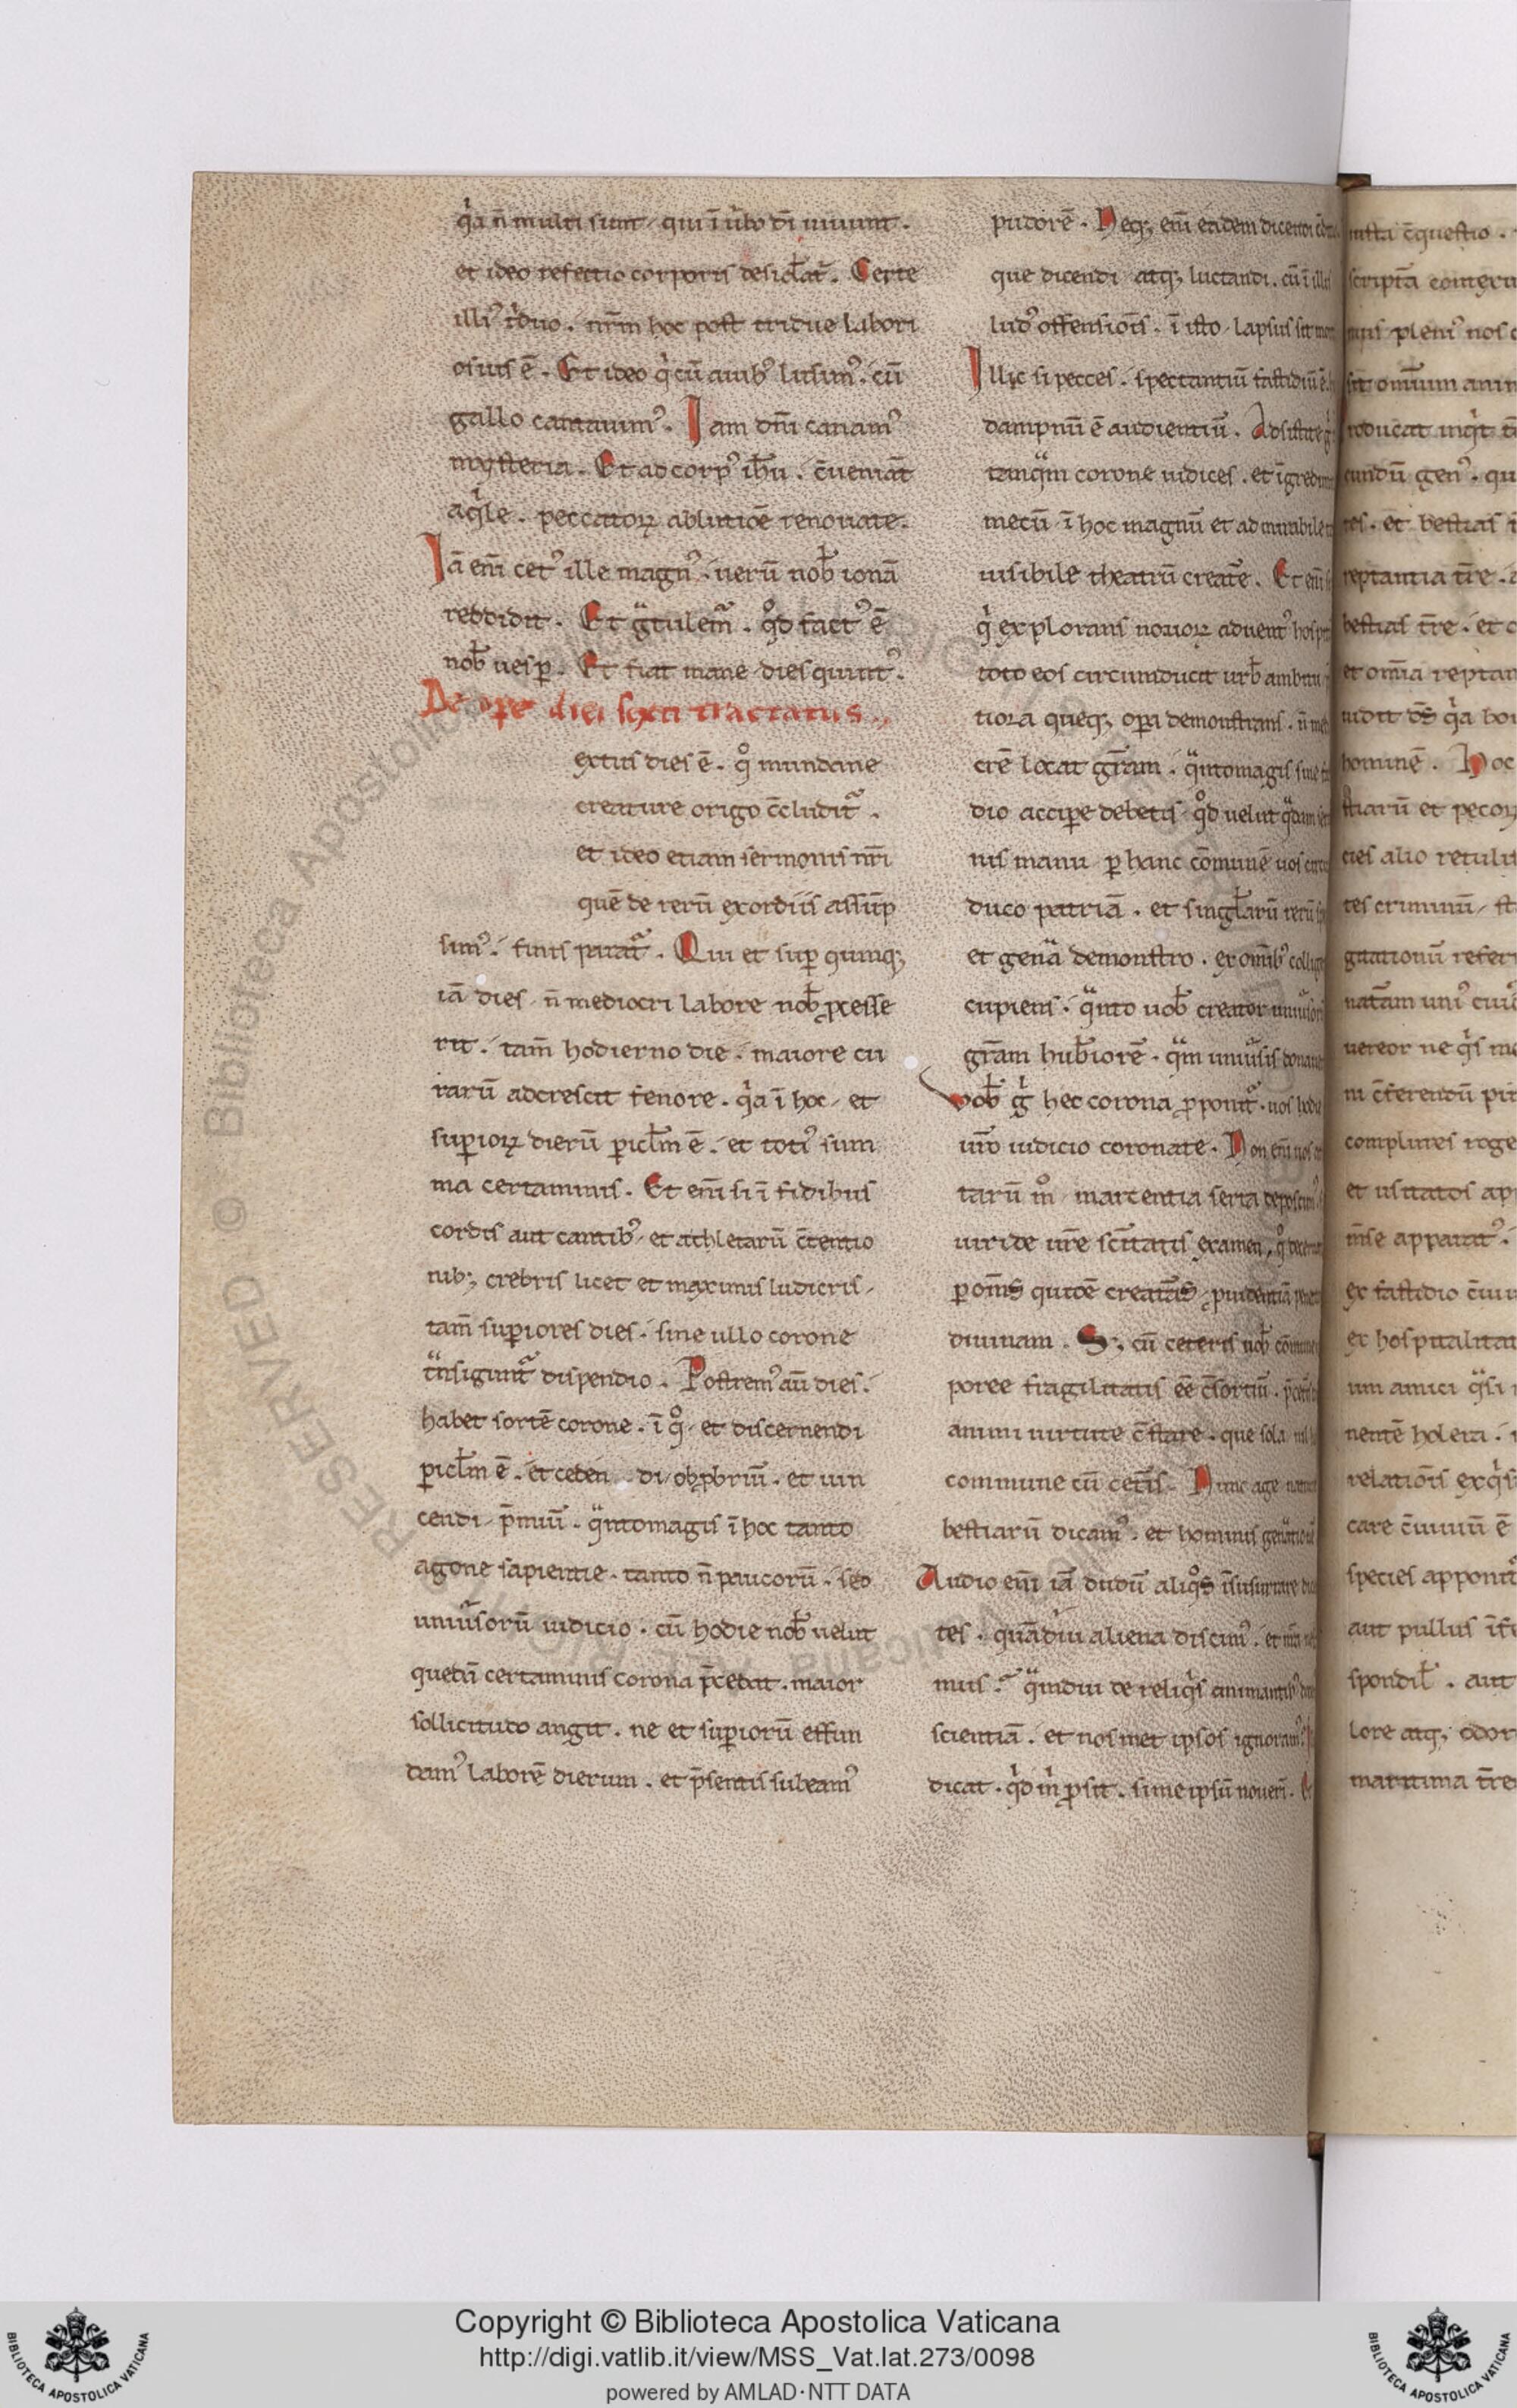 q̾a n̄ multi sunt, qui ī u̾bo dn̄i uiuunt.
et ideo refectio corporis desid̾at᷑. Certe
illi᾽ t̾duo. nr̄m hoc post tridue labori
osius ē. Et ideo q̾ cū auib᾽ lusim᾽. cū
gallo cantauim᾽. Iam dn̄i canam᾽
mysteria. Et ad corp᾽ ih̄u. c̄ueniāt
aq̾le. peccatoꝝ ablutiōe renouate.
Iā em̄ cet᾽ ille magn᾽. uerū nob̾ ionā
reddidit. Et gͣtulem᷑. qͦd fact᾽ ē
nob̾ uesꝑ. Et fiat mane dies quint᾽.
De oꝑe diei sexti tractatus.
extus dies ē. qͦ mundane
creature origo c̄cludit᷑.
et ideo etiam sermonis nr̄i
quē de rerū exordiis assūp
sim᾽. finis parat᷑. Qui et suꝑ quinqꝫ
iā dies n̄ mediocri labore nob̾ ꝓcesse
rit. tam̄ hodierno die. maiore cu
rarū adcrescit fenore. q̾a ī hoc, et
suꝑioꝝ dierū ꝑicl̄m ē. et toti᾽ sum
ma certaminis. Et em̄ si ī fidibus
cordis aut cantib᾽, et athletarū c̄tentio
nibꝫ crebris licet et maximis ludicris,
tam̄ suꝑiores dies. sine ullo corone
tͣnsigunt᷑ dispendio. Postrem᾽ aū dies.
habet sortē corone. ī qͦ, et discernendi
ꝑicl̄m ē. et ceden di, obꝓbriū. et uin
cendi, p̄miū. qͣntomagis ī hoc tanto
agone sapientie. tanto n̄ paucorū. sed
uniu̾sorū iudicio. cū hodie nob̾ uelut
quedū certaminis corona p̄cedat. maior
sollicitudo angit. ne et suꝑiorū effun
dam᾽ laborē dierum. et p̄sentis subeam᾽
pudorē. Neqꝫ em̄ eadem dicendi
que dicendi atqꝫ luctandi. cū ī illis
lud᾽ offensiōis. ī isto, lapsus sit
Illic si pecces. spectantiū fastidiū ē.
dampnū ē audientiū. Adsistite g̾
tanqͣm corone iudices. et īgredim
mecū ī hoc magnū et admirabile
uisibile theatrū creatēe. Et em̄
q̾ explorans nouoꝝ aduent᾽ hospit
toto eos circumducit urb̾ ambitu
tiora queqꝫ oꝑa demonstrans. n̄
crē locat gr̄am. qͣntomagis sine
dio accipe debetis qͦd uelut qͣdam
nis manu ꝑ hanc cōmunē uos
duco patriā. et singl̾arū rerū
et genͣa demonstro. ex omīb᾽
cupiens. qͣnto uob̾ creator
gr̄am hub̾iorē. qͣm uniu̾sis
Vob̾ g̾ hec corona ꝓponit᷑. uos
ur̄o iudicio coronate. Non em̄ nos
tarū mͦ, marcentia seria deposcim᾽
uiride ur̄e scītatis examen, qͦ
ꝑ om̄s quidē creatas̄, ꝓuidentiā
diuinam. Sꝫ cū ceteris nob̾
poree fragilitatis eē c̄sortiū.
animi uirtute c̄stare. que sola
commune cū cet̄is. Nunc age
bestiarū dicam᾽. et hominis genͣationē
Audio em̄ iā dudū aliqͦs īsusurrare
tes. quādiu aliena discim᾽. et
mus. qͣmdiu de reliq̾s animantib᾽
scientiā. et nosmet ipsos ignoram᾽.
dicat. q̾d m̾ ꝓsit. si me ipsū nouerī.
iusta c̄questio.
scriptā
pleni᾽ nos
sīt omīum
ꝓducat inq̾t
cundū gen᾽.
et bestias
reptantia tr̄e.
bestias tr̄e. et
et omīa
uidit ds̄ q̾a
hominē. Hoc
stiarū et pecoꝝ
cies alio
tes criminū,
gitationū
natam uni᾽
uereor ne q̾s
ni c̄ferendū
complures
et usitatos
m̄se apparat᾽.
ex fastidio
ex hospitalitat
um amici qͣsi
nentē
relatiōis
care c̄uiuiū ē
species
aut pullus
spondil̾. aut
lore atqꝫ
maritima tr̄e
RESERVED © Biblioteca Apostolica Vaticana
Copyright © Biblioteca Apostolica Vaticana
http://digi.vatlib.it/view/MSS_Vat.lat.273/0098
powered by AMLAD·NTT DATA
BIBLIOTECA APOSTOLICA VATICANA
BIBLIOTECA APOSTOLICA VATICANA